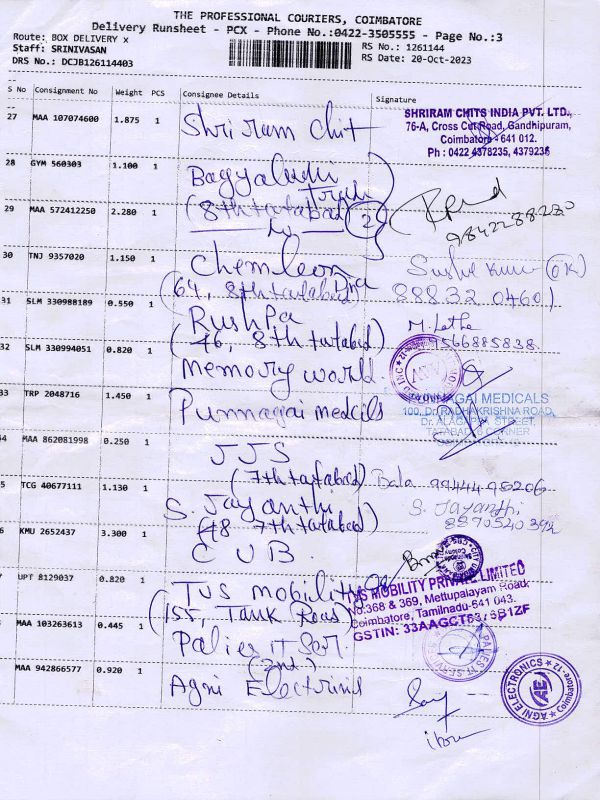 THE PROFESSIONAL COURIERS, COIMBATORE
Delivery Runsheet - PCX - Phone No.:0422-3505555 - Page No.:3
Route: BOX DELIVERY x
RS No.: 1261144
Staff: SRINIVASAN
RS Date: 20-Oct-2023
DRS No.: DCJB126114403
S No Consignment No Weight PCS Consignee Details Signature
27 MAA 107074600 1.875 1 Shriram Chit
SHRIRAM CHITS INDIA PVT. LTD.,
76-A, Cross Cut Road, Gandhipuram,
Coimbatore - 641 012.
Ph : 0422 4378235, 4379236
28 GYM 560303 1.100 1
29 MAA 572412250 2.280 1 (8th tatabad) 2
9842288220
30 TNJ 9357020 1.150 1 Chemleon
(64, 8th tatabad)
88832 04601
31 SLM 330988189 0.550 1 Rushpa
(46, 8th tatabad)
M. Latha
9566885838
32 SLM 330994051 0.820 1 Memory world
33 TRP 2048716 1.450 1 Punnagai medcils
PUNNAGAI MEDICALS
100, Dr. RADHAKRISHNA ROAD,
Dr. ALAGAPPA STREET,
TATABAD CORNER
MAA 862081998 0.250 1 JJS
(7th tatabad) Bala 99444 98206
TCG 40677111 1.130 1 S. Jayanthi
(48 7th tatabad)
S. Jayanthi
KMU 2652437 3.300 1 CUB.
UPT 8129037 0.820 1 TVS mobility
(155, Tank Road)
MOBILITY PRIVATE LIMITED
No:368 & 369, Mettupalayam Road,
Coimbatore, Tamilnadu-641 043.
MAA 103263613 0.445 1 IT Ser.
(2nd.)
MAA 942866577 0.920 1 Agni Electrinis
AGNI ELECTRONICS
AE
Coimbatore-12